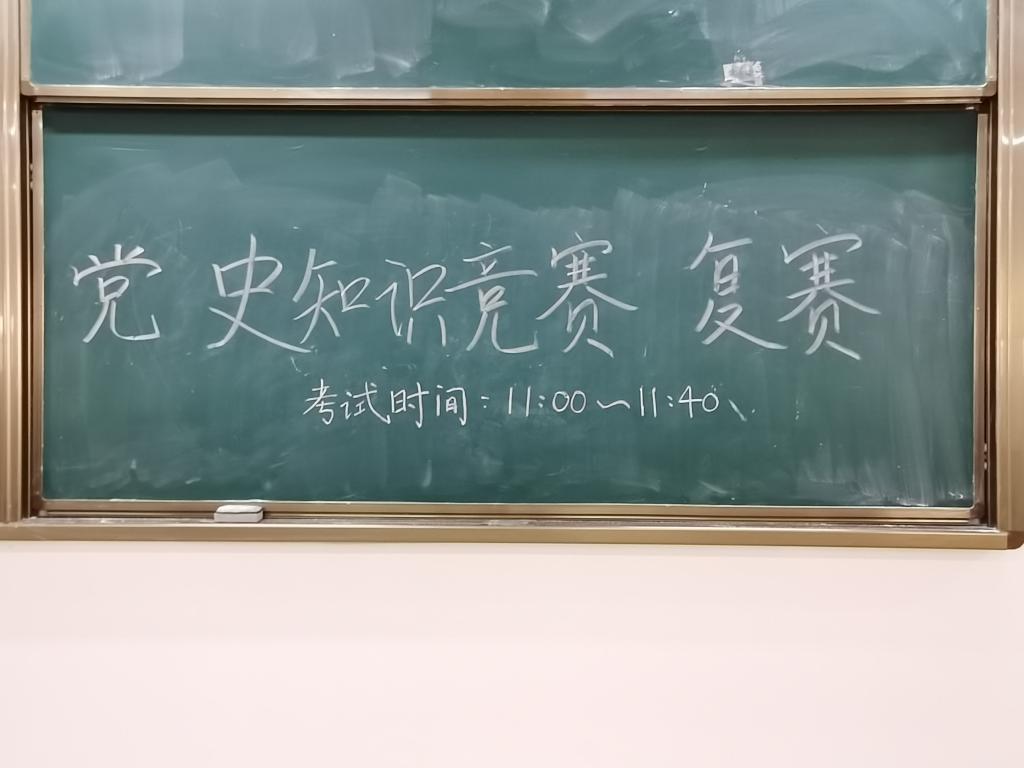 党史知识竞赛 复赛
考试时间：11:00～11:40